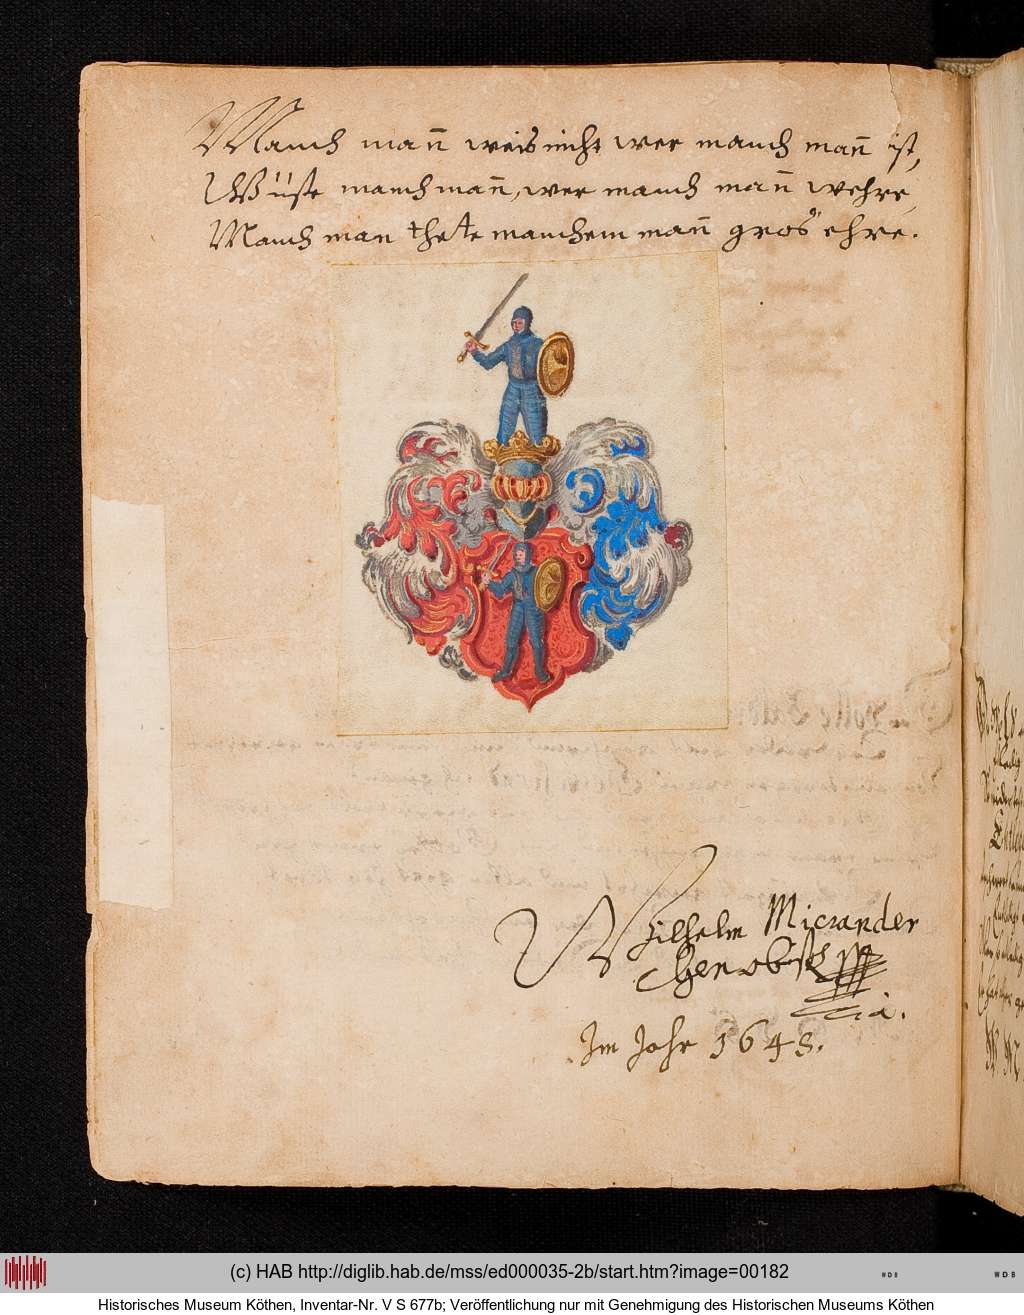 Manch man̄ weis nicht wer manch man̄ ist,
Wüste manch man̄, wer manch man̄ wehre,
Manch man thete manchem man̄ gros ehre.
Wilhelm Micrander
Im Jahr 1648.
(c) HAB http://diglib.hab.de/mss/ed000035-2b/start.htm?image=00182
WDB
WDB
Historisches Museum Köthen, Inventar-Nr. V S 677b; Veröffentlichung nur mit Genehmigung des Historischen Museums Köthen